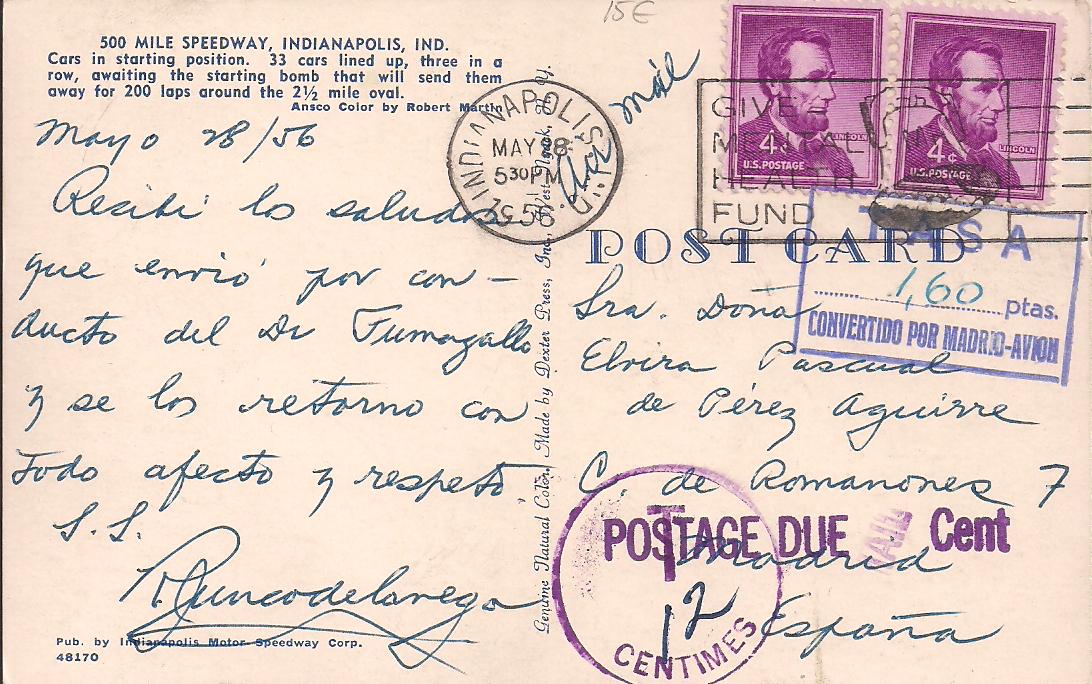 15€
500 MILE SPEEDWAY, INDIANAPOLIS, IND.
Cars in starting position. 33 cars lined up, three in a
row, awaiting the starting bomb that will send them
away for 200 laps around the 2½ mile oval.
Ansco Color by Robert Martin
Mayo 28/56
Recibí los saludos
que envió por con-
ducto del Dr Fumagallo
y se los retorno con
todo afecto y respeto
S.S.
Pub. by Indianapolis Motor Speedway Corp.
48170
Genuine Natural Color. Made by Dexter Press, Inc., West Nyack, N. Y.
INDIANAPOLIS IND.
MAY 28
530 PM
1956
Air mail
GIVE
MENTAL
HEALTH
FUND
LINCOLN
4¢
U.S. POSTAGE
LINCOLN
4¢
U.S. POSTAGE
POST CARD
TASA
1,60 ptas.
CONVERTIDO POR MADRID-AVION
Sra. Doña
Elvira Pascual
de Pérez Aguirre
C. de Romanones 7
Madrid
España
POSTAGE DUE Cent
T
12
CENTIMES